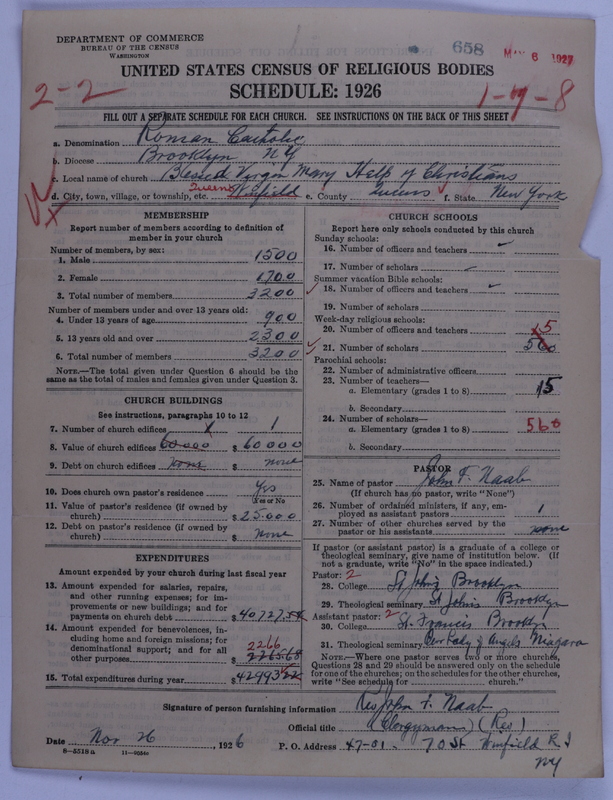 DEPARTMENT OF COMMERCE
BUREAU OF THE CENSUS
WASHINGTON
658
6 1927
UNITED STATES CENSUS OF RELIGIOUS BODIES
SCHEDULE: 1926
2-2
FILL OUT A SEPARATE SCHEDULE FOR EACH CHURCH. SEE INSTRUCTIONS ON THE BACK OF THIS SHEET
a. Denomination Roman Catholic
b. Diocese Brooklyn NY
c. Local name of church Blessed Virgin Mary Help of Christians
d. City, town, village, or township, etc. Queens Winfield e. County Queens f. State New York
MEMBERSHIP
Report number of members according to definition of member in your church
Number of members, by sex:
1. Male 1500
2. Female 1700
3. Total number of members 3200
Number of members under and over 13 years old:
4. Under 13 years of age 900
5. 13 years old and over 2300
6. Total number of members 3200
NOTE.—The total given under Question 6 should be the same as the total of males and females given under Question 3.
CHURCH BUILDINGS
See instructions, paragraphs 10 to 12
7. Number of church edifices 1
8. Value of church edifices 60000 $ 60000
9. Debt on church edifices None $ none
10. Does church own pastor's residence Yes
Yes or No
11. Value of pastor's residence (if owned by church) $ 25000
12. Debt on pastor's residence (if owned by church) $ None
EXPENDITURES
Amount expended by your church during last fiscal year
13. Amount expended for salaries, repairs, and other running expenses; for improvements or new buildings; and for payments on church debt $ 40727.54
14. Amount expended for benevolences, including home and foreign missions; for denominational support; and for all other purposes 2266 $ 2265.68
15. Total expenditures during year $ 42993.22
CHURCH SCHOOLS
Report here only schools conducted by this church
Sunday schools:
16. Number of officers and teachers
17. Number of scholars
Summer vacation Bible schools:
18. Number of officers and teachers
19. Number of scholars
Week-day religious schools:
20. Number of officers and teachers 5
21. Number of scholars 560
Parochial schools:
22. Number of administrative officers
23. Number of teachers—
a. Elementary (grades 1 to 8) 15
b. Secondary
24. Number of scholars—
a. Elementary (grades 1 to 8) 560
b. Secondary
PASTOR
25. Name of pastor John F. Naab
(If church has no pastor, write "None")
26. Number of ordained ministers, if any, employed as assistant pastors 1
27. Number of other churches served by the pastor or his assistants none
If pastor (or assistant pastor) is a graduate of a college or theological seminary, give name of institution below. (If not a graduate, write "No" in the space indicated.)
Pastor: 2
28. College St John's Brooklyn
29. Theological seminary St John's Brooklyn
Assistant pastor: 2
30. College St. Francis Brooklyn
31. Theological seminary Our Lady of Angels Niagara
NOTE.—Where one pastor serves two or more churches, Questions 28 and 29 should be answered only on the schedule for one of the churches; on the schedules for the other churches, write "See schedule for church."
Signature of person furnishing information Rev John F. Naab
Official title (Clergyman) (Rev)
Date Nov 26, 1926 P. O. Address 47-01. 70 St Winfield
NY
8-5518a 11-9054a